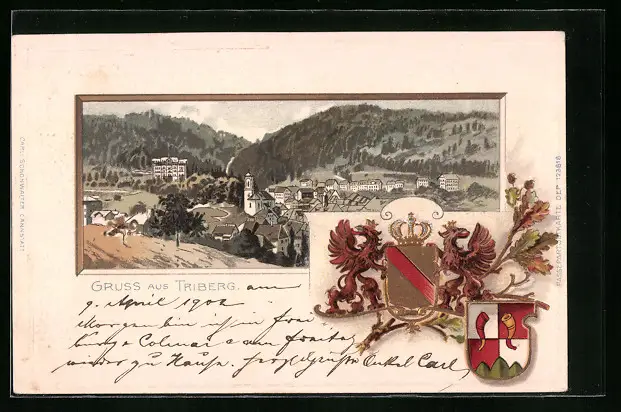 GRUSS AUS TRIBERG. am
9. April 1902
Morgen bin ich in Frei
burg & Colmar & am Freitag
wieder zu Hause. Herzl. Grüße Onkel Carl
CARL SCHÖNWALTER CANNSTATT
PASSEPARTOUT-KARTE DEP. 123616